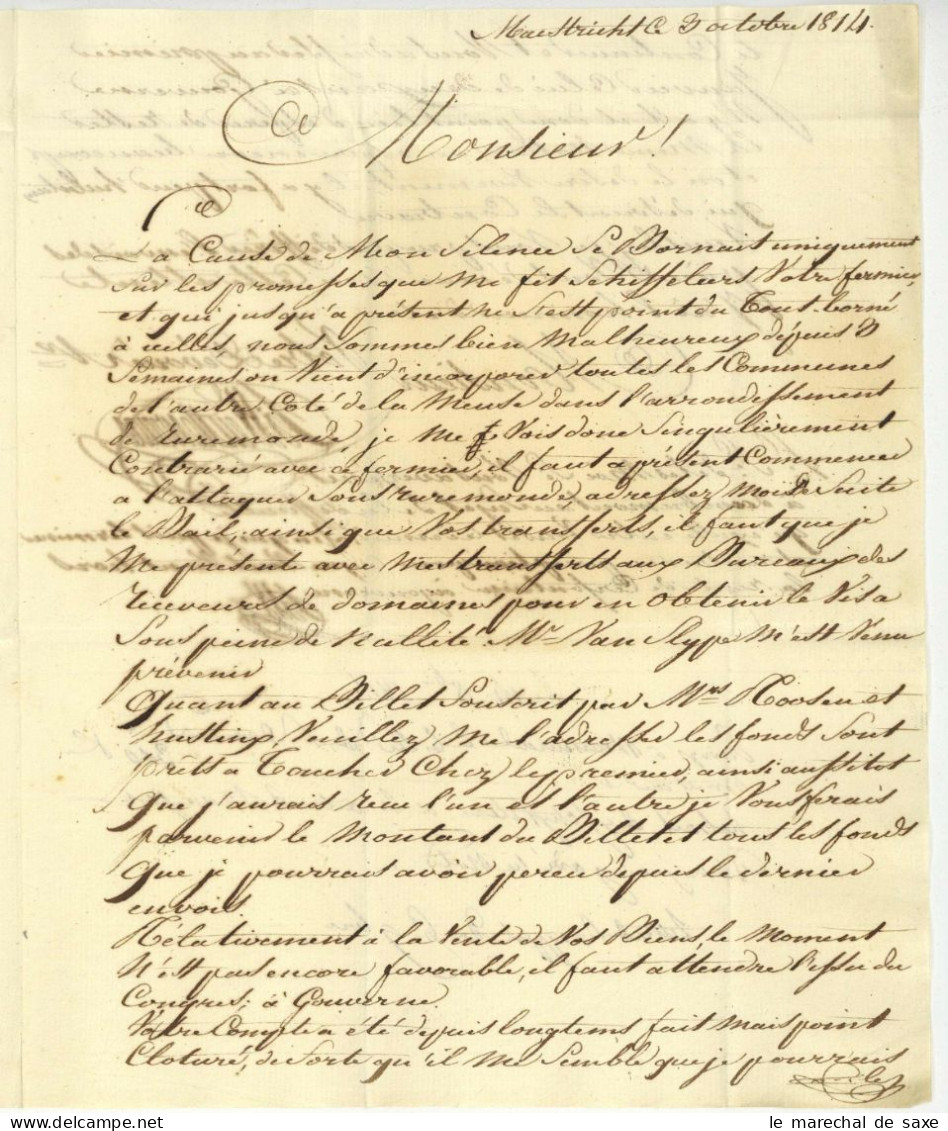 Maestricht Ce 3 octobre 1814.
Monsieur!
La Cause de Mon Silence Se Bornait uniquement
Sur les promesses que Me fit Schiffeleurs Votre fermier,
et qui jusqu'a présent ne S'est point du Tout borné
à icelles, nous Sommes bien Malheureux depuis 3
Semaines on Vient d'incorporer toutes les Communes
de l'autre Coté de la Meuse dans l'arrondissement
de Ruremonde, je Me Vois donc Singulièrement
Contrarié avec ce fermier, il faut a présent Commencer
a l'attaquer Sous Ruremonde, adressez Moi de Suite
le Bail, ainsi que Vos transferts, il faut que je
Me présente avec Mes transferts aux Bureaux des
receveurs de domaines pour en obtenir le Visa
Sous peine de Nullité. Mr. Van Slype M'est Venu
prévenir
Quant au Billet Souscrit par Mrs Roosen et
hustinx Veuillez Me l'adresser les fonds Sont
prêts a Toucher Chez les premier, ainsi aussitot
que j'aurais recu l'un et l'autre je Vous ferais
parvenir le Montant du Billet et tous les fonds
que je pourrais avoir percu depuis le dernier
envois.
Rélativement à la Vente de Vos Biens, le Moment
N'est pas encore favorable, il faut attendre l'issu du
Congres, à Gouverne.
Votre Compte a été depuis longtems fait Mais point
Cloturé, de Sorte qu'il Me Semble que je pourrais
le marechal de saxe